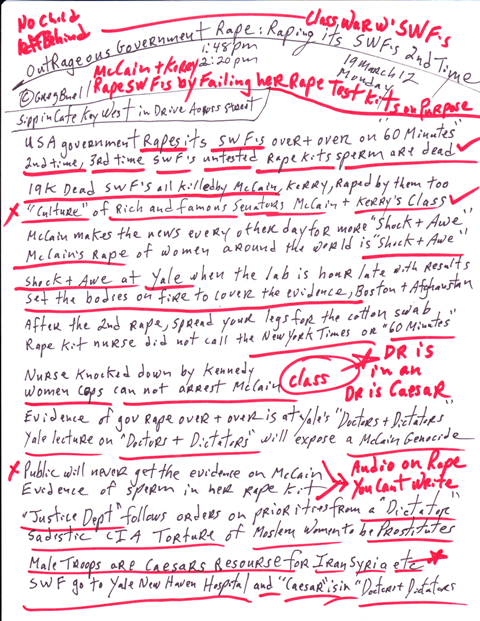 No Child
Left Behind
Class War w' SWF's
OutRageous Government Rape: Raping its SWF's 2nd Time
1:48pm
2:20pm
19 March 12
Monday
McCain + Kerry
Rape SWF's by Failing her Rape Test Kits on Purpose
© Greg Buell
Sippin Cafe Key West in Drive Across Street
USA government Rapes its SWF's over + over on "60 Minutes"
2nd time, 3rd time SWF's untested Rape Kits sperm are dead
19K Dead SWF's all killed by McCain, Kerry, Raped by them too
"Culture" of Rich and famous Senators McCain + Kerry's Class
McCain makes the news every other day for more "Shock + Awe"
McCain's Rape of women around the world is "Shock + Awe"
Shock + Awe at Yale when the lab is hour late with results
Set the bodies on fire to cover the evidence, Boston + Afghanistan
After the 2nd rape, spread your legs for the cotton swab
Rape Kit nurse did not call the New York Times or "60 Minutes"
Nurse Knocked down by Kennedy
Women Cops can not arrest McCain
Class
DR is
in an
DR is Caesar
Evidence of gov Rape over + over is at Yale's "Doctors + Dictators"
Yale lecture on "Doctors + Dictators" will expose a McCain Genocide
Public will never get the evidence on McCain
Evidence of sperm in her rape Kit
Audio on Rape
You Cant Write
"Justice Dept" follows orders on priorities from a "Dictator"
Sadistic CIA Torture of Moslem Women to be Prostitutes
Male Troops are Caesars Resourse for Iran Syria etc
SWF go to Yale New Haven Hospital and "Caesar" is in "Doctors + Dictators